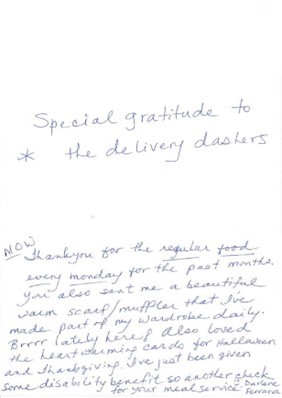 Special gratitude to
* the delivery dashers
MOW
Thankyou for the regular food
every monday for the past months.
You also sent me a beautiful
warm scarf/muffler that I've
made part of my wardrobe daily.
Brrrr lately here! Also loved
the heartwarming cards for Halloween
and Thanksgiving. I've just been given
some disability benefit so another check
for your meal service. Darlene
Ferrara